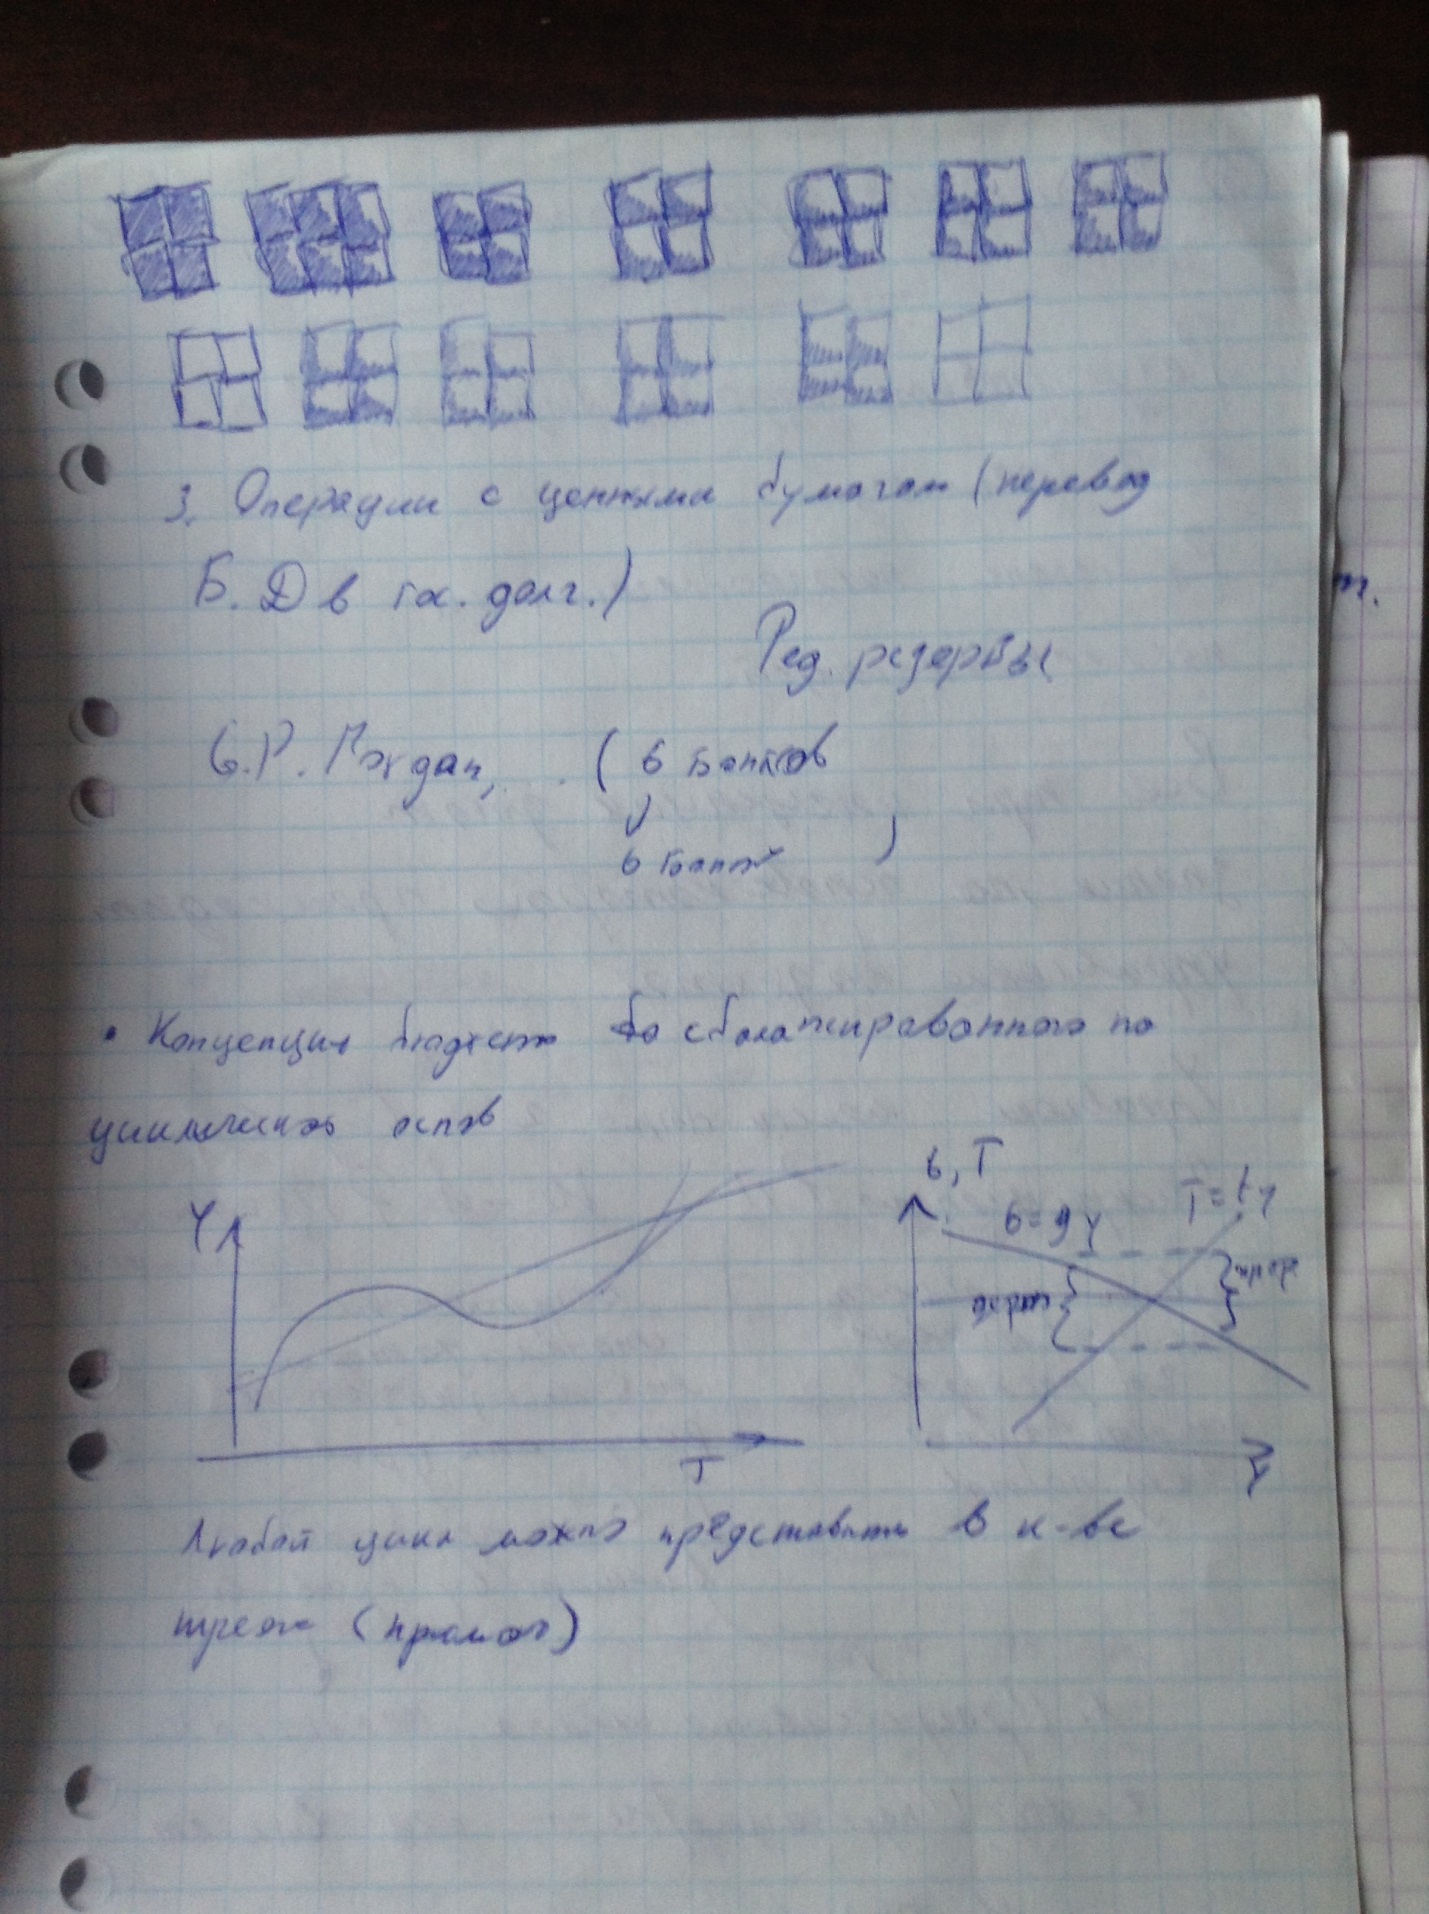 3. Операции с ценными бумагам (перевод
Б. Д в гос. долг.)
Ред. резервы
G.P. Морган, (6 банков
6 банков)
• Концепция бюджета сбалансированного по
циклической основе
Y
T
G, T
G = gY
T = tY
дефицит
проф
Y
Любой цикл можно представить в к-ве
(прямой)